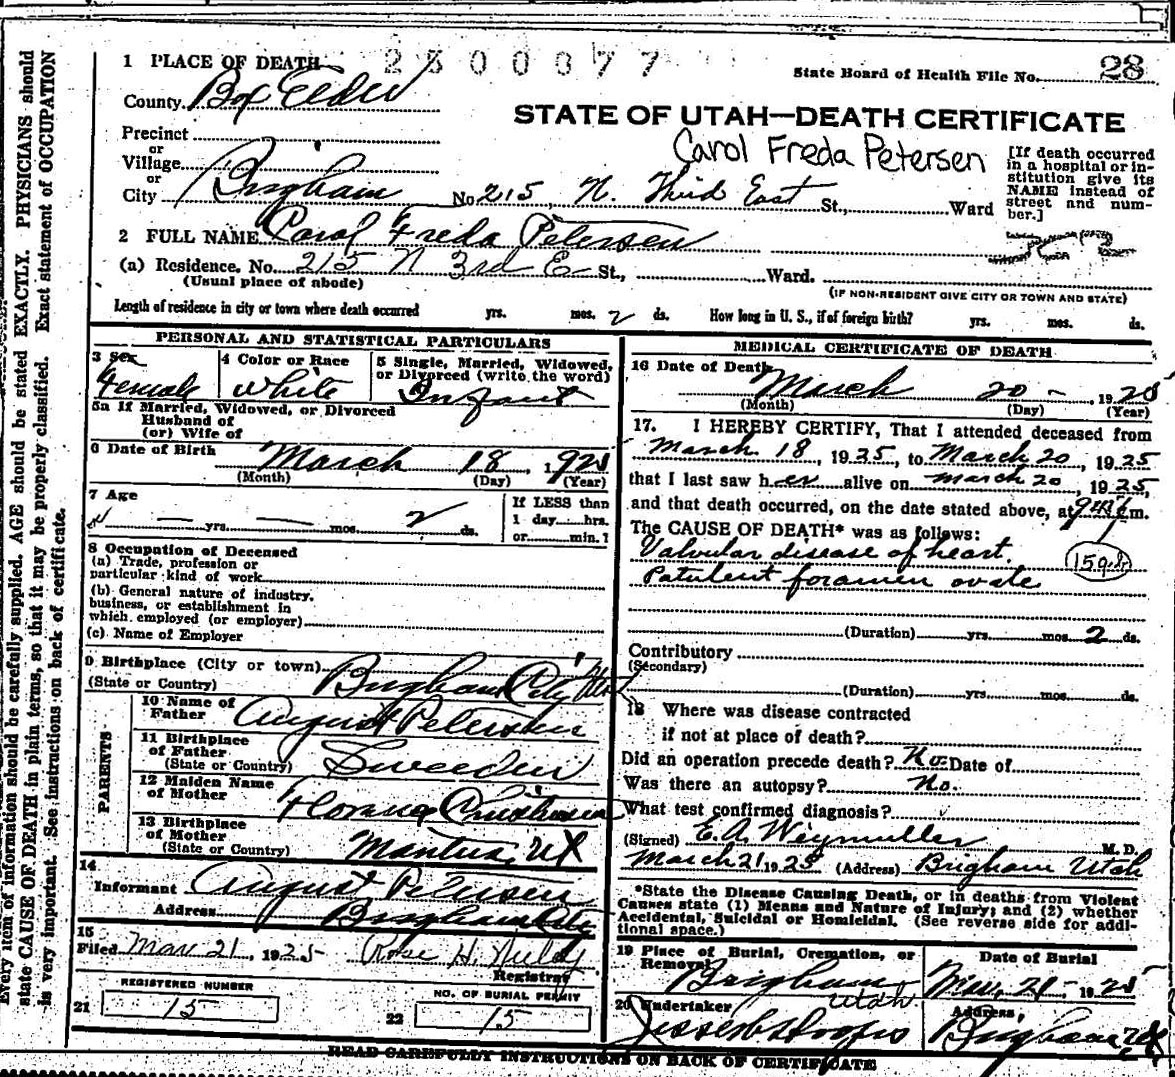 1 PLACE OF DEATH 2500077 State Board of Health File No. 28
County Box Elder
STATE OF UTAH—DEATH CERTIFICATE
Carol Freda Petersen
Precinct
or
Village
or
City Brigham No. 215, N. Third East St., Ward
[If death occurred
in a hospital or in-
stitution give its
NAME instead of
street and num-
ber.]
2 FULL NAME Carol Freda Petersen
(a) Residence. No. 215 N 3rd E St., Ward.
(Usual place of abode) (IF NON-RESIDENT GIVE CITY OR TOWN AND STATE)
Length of residence in city or town where death occurred yrs. mos. 2 ds. How long in U. S., if of foreign birth? yrs. mos. ds.
PERSONAL AND STATISTICAL PARTICULARS
3 Sex 4 Color or Race 5 Single, Married, Widowed,
or Divorced (write the word)
Female White Infant
5a If Married, Widowed, or Divorced
Husband of
(or) Wife of
6 Date of Birth March 18, 1925
(Month) (Day) (Year)
7 Age If LESS than
— yrs. — mos. 2 ds. 1 day hrs.
or min.?
8 Occupation of Deceased
(a) Trade, profession or
particular kind of work
(b) General nature of industry,
business, or establishment in
which employed (or employer)
(c) Name of Employer
9 Birthplace (City or town) Brigham City Utah
(State or Country)
PARENTS
10 Name of
Father August Petersen
11 Birthplace
of Father Sweeden
(State or Country)
12 Maiden Name
of Mother Florence Christensen
13 Birthplace
of Mother
(State or Country) Mantua, Ut
14
Informant August Petersen
Address Brigham City
15
Filed Mar 21, 1925 Rose H.
Registrar
REGISTERED NUMBER NO. OF BURIAL PERMIT
21 15 22 15
MEDICAL CERTIFICATE OF DEATH
16 Date of Death
March 20 - , 1925
(Month) (Day) (Year)
17. I HEREBY CERTIFY, That I attended deceased from
March 18, 1925, to March 20, 1925
that I last saw her alive on March 20, 1925,
and that death occurred, on the date stated above, at m.
The CAUSE OF DEATH* was as follows:
Valvular disease of heart.
Patulent foramen ovale
(Duration) yrs. mos. 2 ds.
Contributory
(Secondary)
(Duration) yrs. mos. ds.
18 Where was disease contracted
if not at place of death?
Did an operation precede death? No. Date of
Was there an autopsy? No.
What test confirmed diagnosis?
(Signed) E. A. Weymuller M. D.
March 21 1925 (Address) Brigham Utah
*State the Disease Causing Death, or in deaths from Violent
Causes state (1) Means and Nature of Injury; and (2) whether
Accidental, Suicidal or Homicidal. (See reverse side for addi-
tional space.)
19 Place of Burial, Cremation, or Date of Burial
Removal Brigham Utah Mar. 21 - 1925
20 Undertaker Address,
Brigham Ut
READ CAREFULLY INSTRUCTIONS ON BACK OF CERTIFICATE
Every item of information should be carefully supplied. AGE should be stated EXACTLY. PHYSICIANS should
state CAUSE OF DEATH in plain terms, so that it may be properly classified. Exact statement of OCCUPATION
is very important. See instructions on back of certificate.